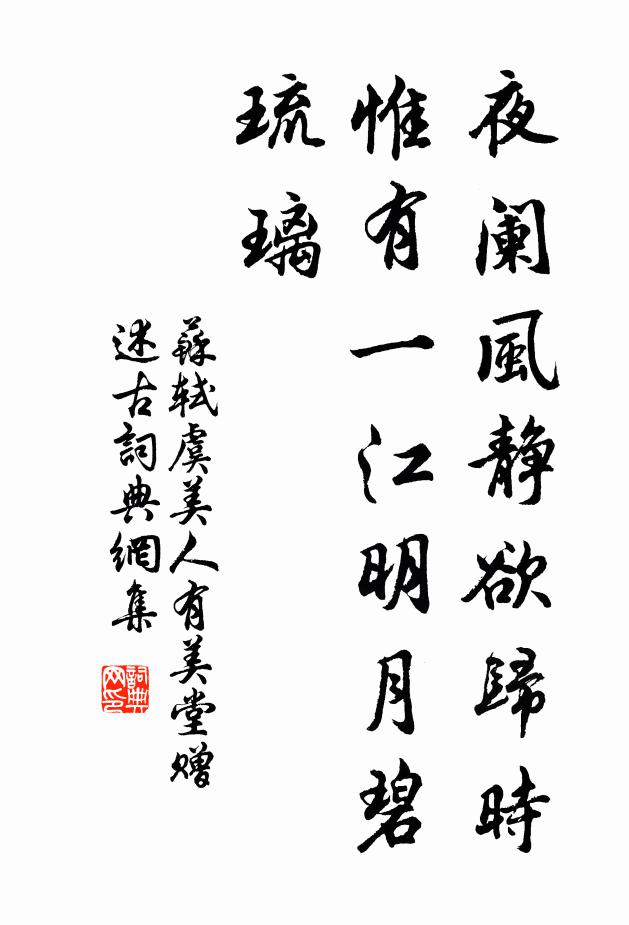 夜阑風静欲歸時
惟有一江明月碧
琉璃
蘇轼虞美人有美堂赠
述古詞典網集
詞典
网印